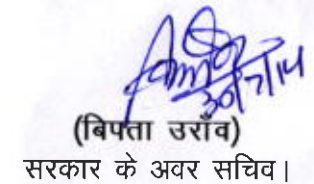 30/7/14
(बिफ्ता उराँव)
सरकार के अवर सचिव।